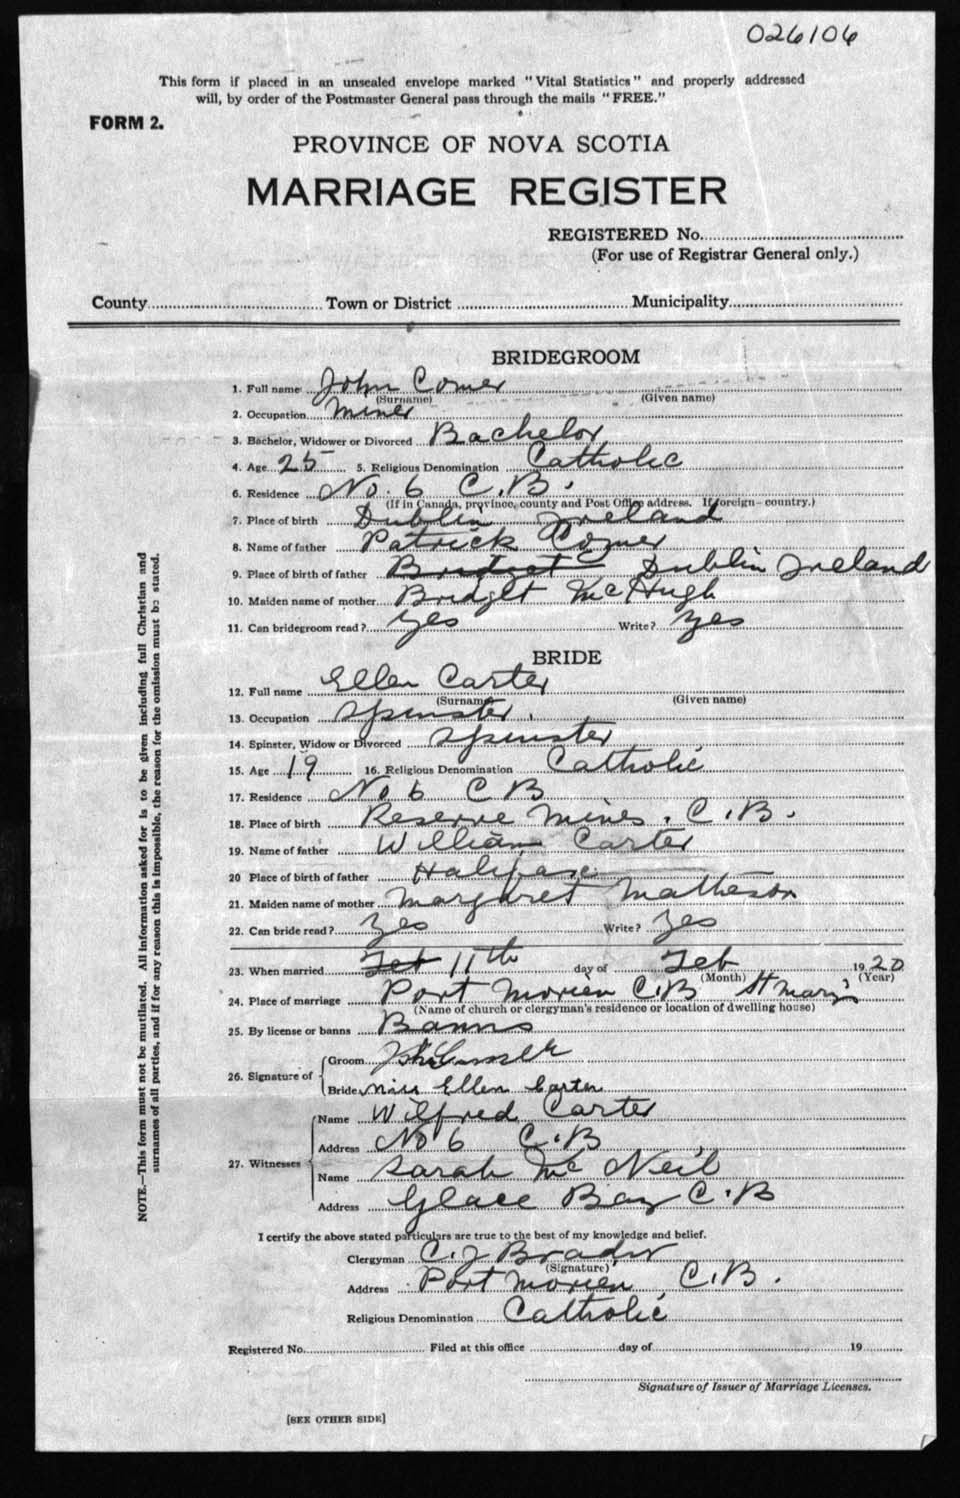 026106
This form if placed in an unsealed envelope marked "Vital Statistics" and properly addressed
will, by order of the Postmaster General pass through the mails "FREE."
FORM 2.
PROVINCE OF NOVA SCOTIA
MARRIAGE REGISTER
REGISTERED No.
(For use of Registrar General only.)
County Town or District Municipality
BRIDEGROOM
1. Full name John Comer
(Surname) (Given name)
2. Occupation Miner
3. Bachelor, Widower or Divorced Bachelor
4. Age 25 5. Religious Denomination Catholic
6. Residence No. 6 C.B.
(If in Canada, province, county and Post Office address. If foreign—country.)
7. Place of birth Dublin Ireland
8. Name of father Patrick Comer
9. Place of birth of father Bridget C Dublin Ireland
10. Maiden name of mother Bridget McHugh
11. Can bridegroom read? Yes Write? Yes
BRIDE
12. Full name Ellen Carter
(Surname) (Given name)
13. Occupation Spinster
14. Spinster, Widow or Divorced Spinster
15. Age 19 16. Religious Denomination Catholic
17. Residence No 6 C B
18. Place of birth Reserve Mines, C.B.
19. Name of father William Carter
20 Place of birth of father Halifax
21. Maiden name of mother Margaret Matheson
22. Can bride read? Yes Write? Yes
23. When married Feb 11th day of Feb 1920
(Month) (Year)
24. Place of marriage Port Morien C.B St Mary's
(Name of church or clergyman's residence or location of dwelling house)
25. By license or banns Banns
26. Signature of Groom
Bride Miss Ellen Carter
27. Witnesses Name Wilfred Carter
Address No 6 C.B
Name Sarah Mc Neil
Address Glace Bay C.B
I certify the above stated particulars are true to the best of my knowledge and belief.
Clergyman C. J.
(Signature)
Address Port Morien C.B.
Religious Denomination Catholic
Registered No. Filed at this office day of 19
Signature of Issuer of Marriage Licenses.
[SEE OTHER SIDE]
NOTE.—This form must not be mutilated. All information asked for is to be given including full Christian and
surnames of all parties, and if for any reason this is impossible, the reason for the omission must be stated.